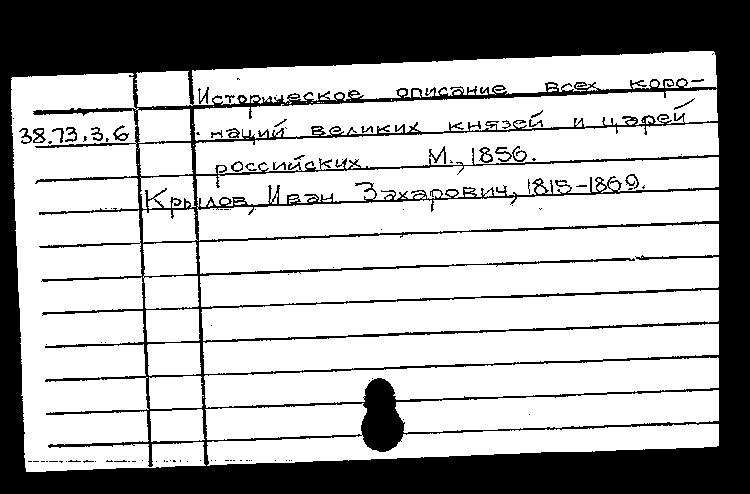 Историческое описание всех коро-
38.73.3.6 наций великих князей и царей
российских. М., 1856.
Крылов, Иван Захарович, 1815-1869.